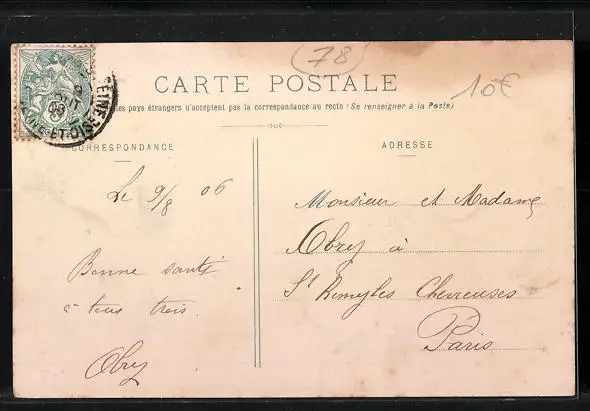 (78)
CARTE POSTALE
10€
les pays étrangers n'acceptent pas la correspondance au recto (Se renseigner à la Poste)
SEINE-ET-OISE
CORRESPONDANCE
ADRESSE
Le 9/8 06
Bonne santé
à tous trois
Obry
Monsieur et Madame
Obry à
St Remy les Chevreuses
Paris